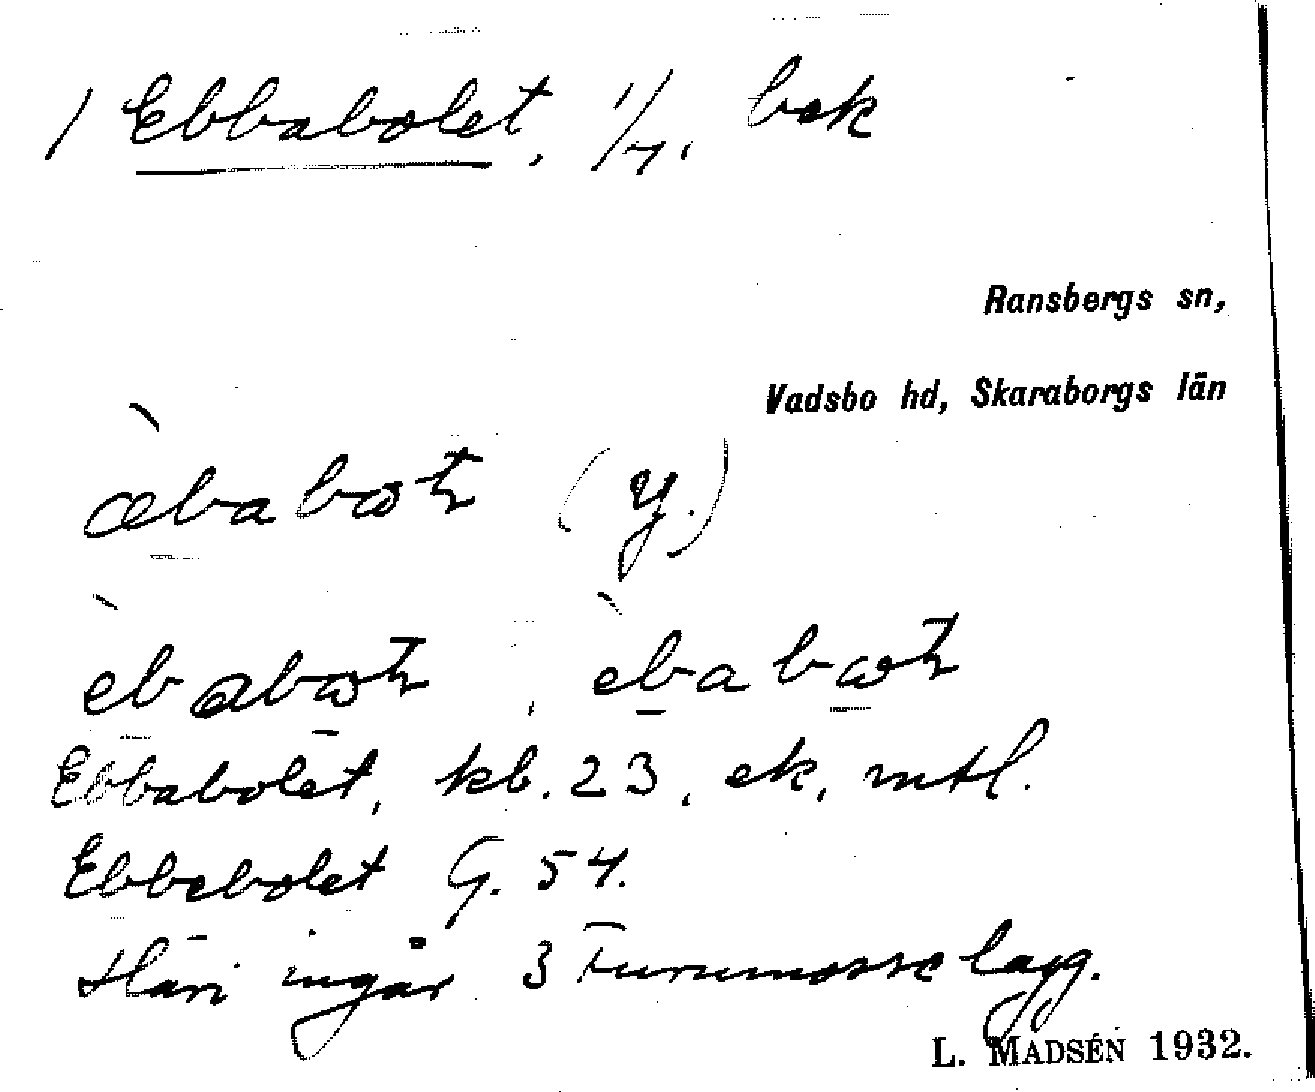 1 Ebbabolet, 1/4, bek
Ransbergs sn,
Vadsbo hd, Skaraborgs län
(y.)
Ebbabolet, kb. 23, ek, mtl.
Ebbebolet G. 54.
Häri ingår 3 Furumosselagg.
L. MADSÉN 1932.